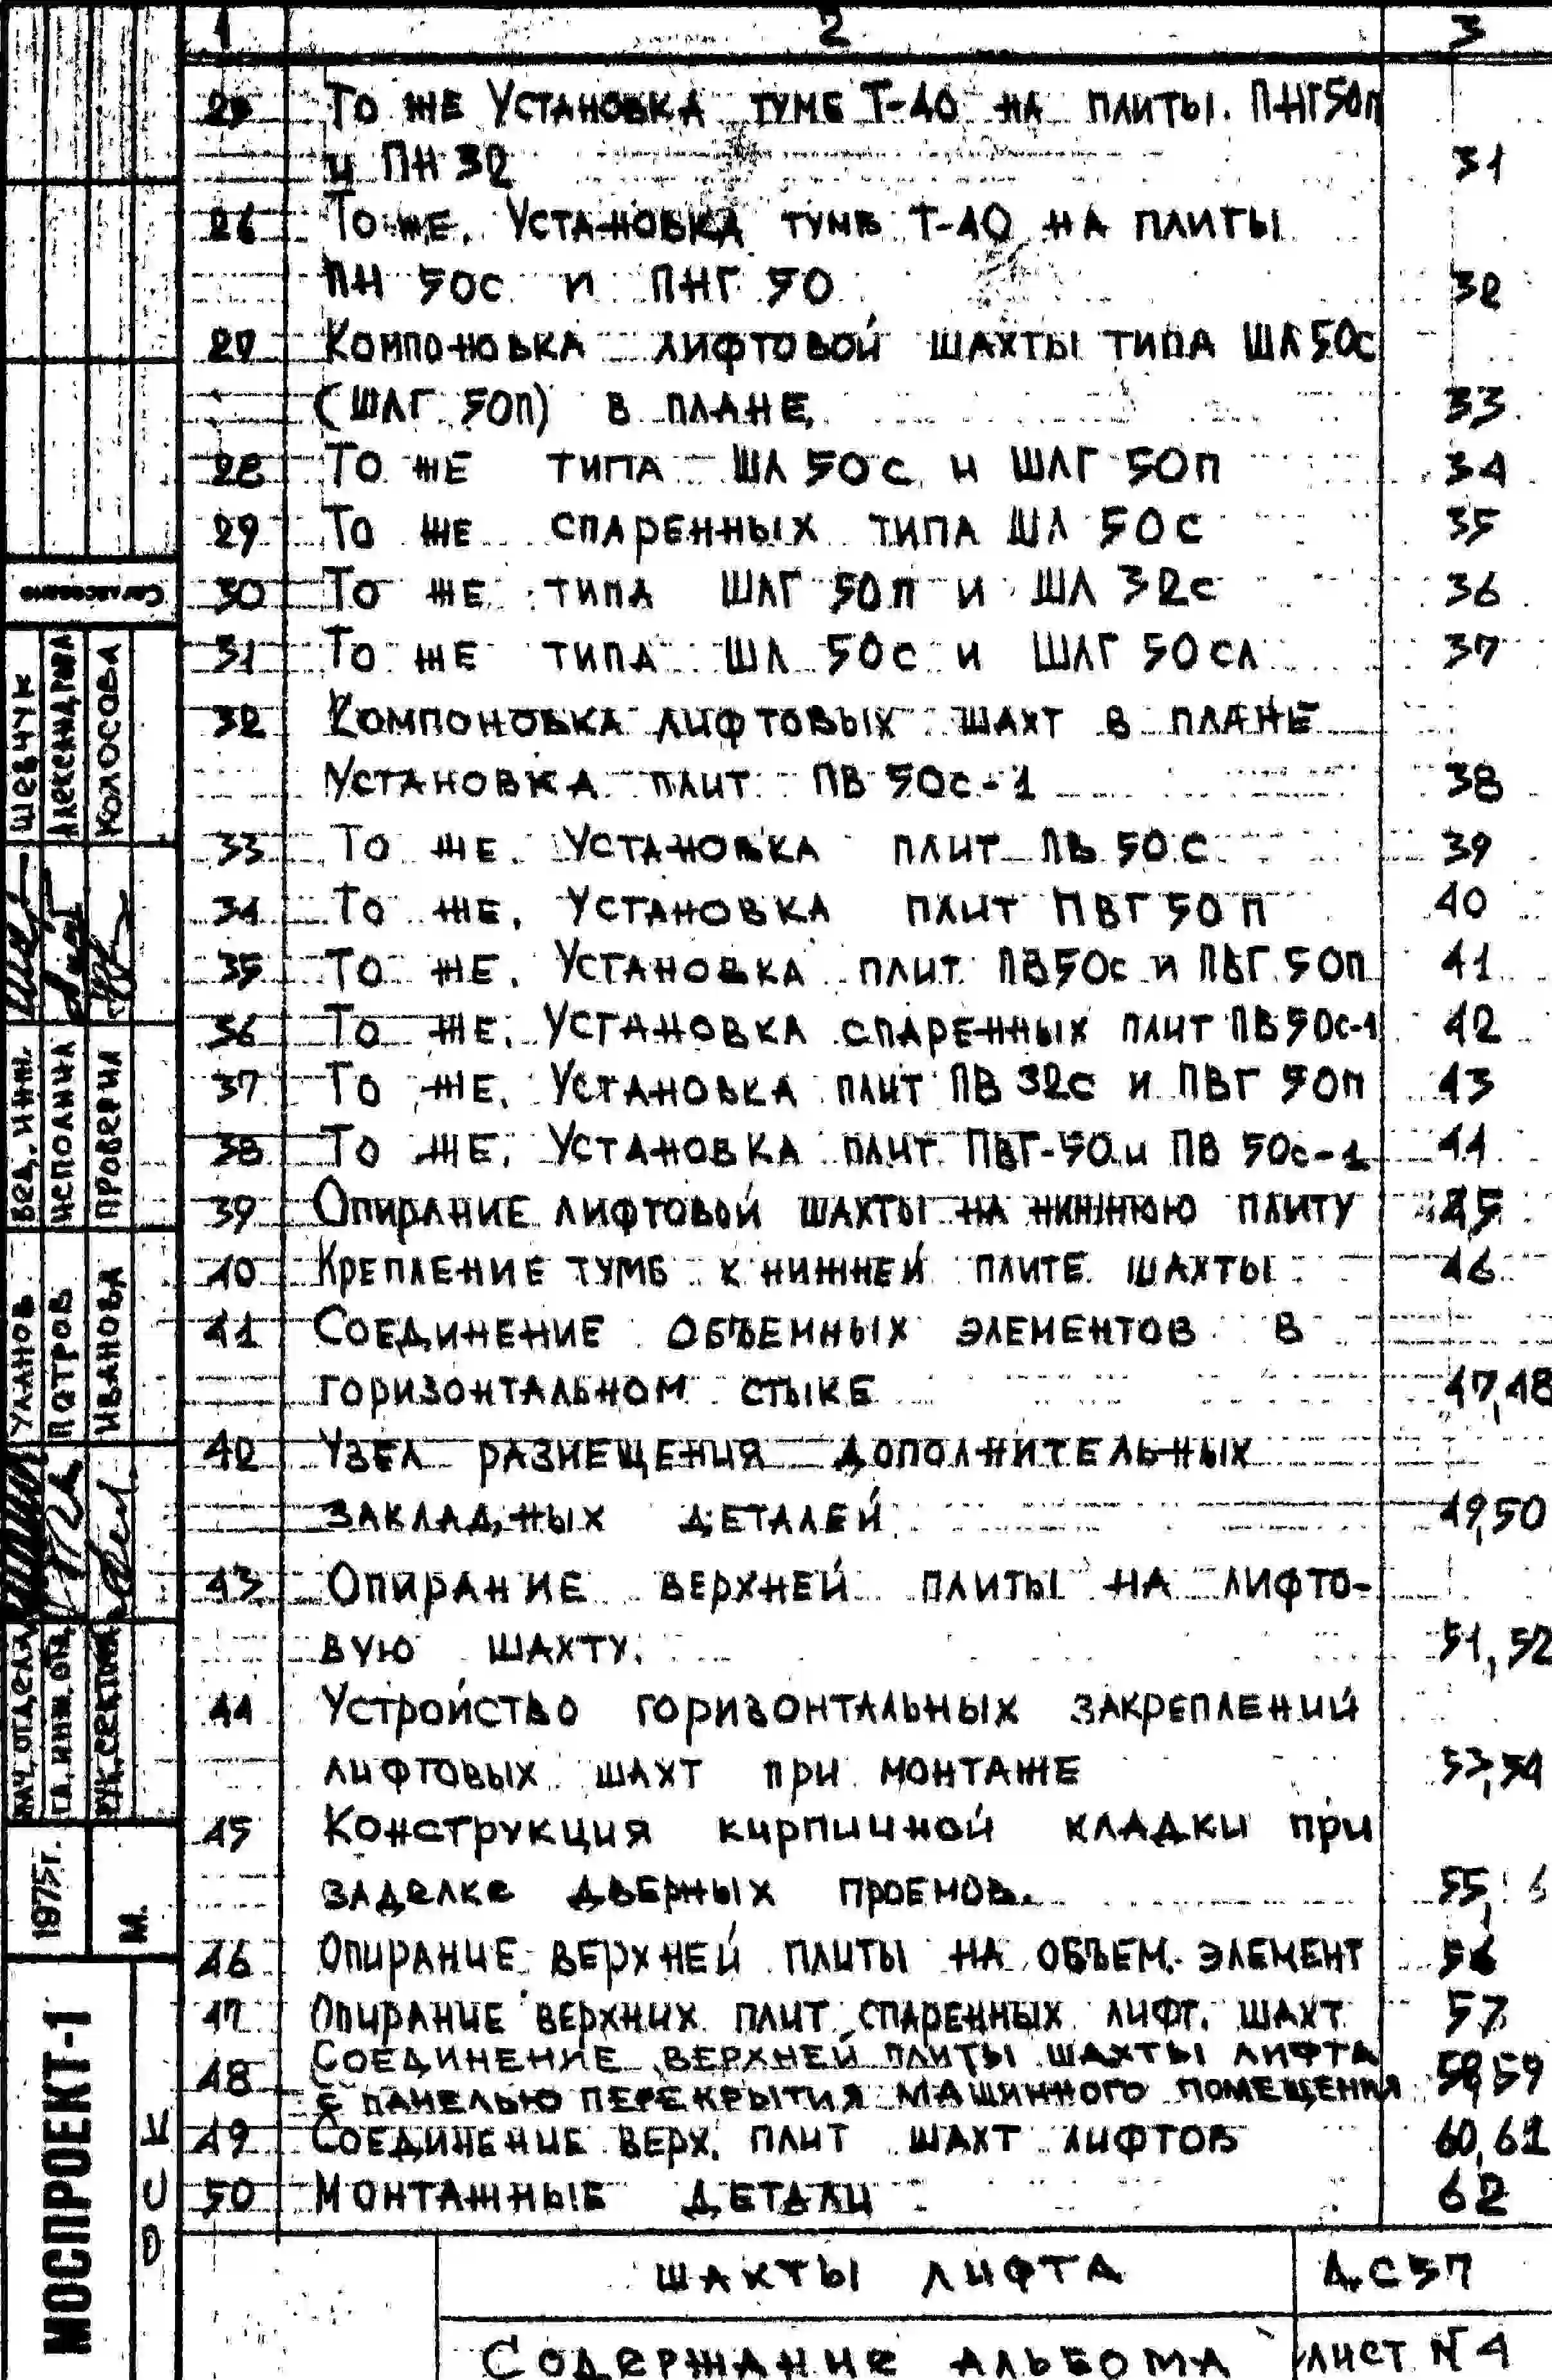 1 2 3
25 То же Установка тумб Т-40 на плиты. ПНГ50п
и ПН 32 31
26 То же. Установка тумб Т-40 на плиты
ПН 50с и ПНГ 50 32
27 Компоновка лифтовой шахты типа ШЛ50с
(ШЛГ 50п) в плане, 33
28 То же типа ШЛ 50с и ШЛГ 50п 34
29 То же спаренных типа ШЛ 50с 35
30 То же типа ШЛГ 50п и ШЛ 32с 36
31 То же типа ШЛ 50с и ШЛГ 50сл 37
32 Компоновка лифтовых шахт в плане
Установка плит ПВ 50с-1 38
33 То же. Установка плит ПВ 50с 39
34 То же, Установка плит ПВГ 50п 40
35 То же, Установка плит ПВ50с и ПВГ 50п 41
36 То же, Установка спаренных плит ПВ50с-1 42
37 То же, Установка плит ПВ 32с и ПВГ 50п 43
38 То же, Установка плит ПВГ-50 и ПВ 50с-1 44
39 Опирание лифтовой шахты на нижнюю плиту 45
40 Крепление тумб к нижней плите шахты 46
41 Соединение объемных элементов в
горизонтальном стыке 47,48
42 Узел размещения дополнительных
закладных деталей 49,50
43 Опирание верхней плиты на лифто-
вую шахту. 51,52
44 Устройство горизонтальных закреплений
лифтовых шахт при монтаже 53,54
45 Конструкция кирпичной кладки при
заделке дверных проемов. 55
46 Опирание верхней плиты на объем. элемент 56
47 Опирание верхних плит спаренных лифт. шахт 57
48 Соединение верхней плиты шахты лифта
с панелью перекрытия машинного помещения 58,59
49 Соединение верх. плит шахт лифтов 60,61
50 Монтажные детали 62
Шахты лифта ДС57
Содержание альбома Лист N4
Согласовано
Шевчук
Александрова
Колосова
Вед. инж.
Исполнил
Проверил
Уланов
Петров
Иванова
Нач. отдела
Гл. инж. отд.
Рук. сектора
1975г.
М.
МОСПРОЕКТ-1